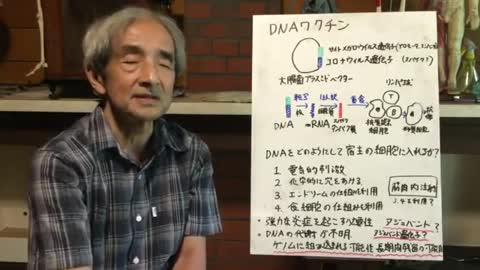 DNAワクチン
サイトメガロウイルス遺伝子(プロモーター
コロナウイルス遺伝子(スパイク?)
大腸菌プラスミドベクター
リンパ球
転写
翻訳
貪食
核
細胞質
T
B
抗体
DNA
mRNA
スパイク
タンパク質
細胞
DNAをどのようにして宿主の細胞に入れるか?
1 電気的刺激
2 化学的に穴をあける
3 エンドソームの仕組を利用
4 食細胞の仕組を利用
筋肉内注射
3.4を利用?
・強力な炎症を起こす必要性
アジュバント?
・DNAの代謝が不明
アジュバント遺伝子?
ゲノムに組み込まれる可能性
長期間残留の可能性